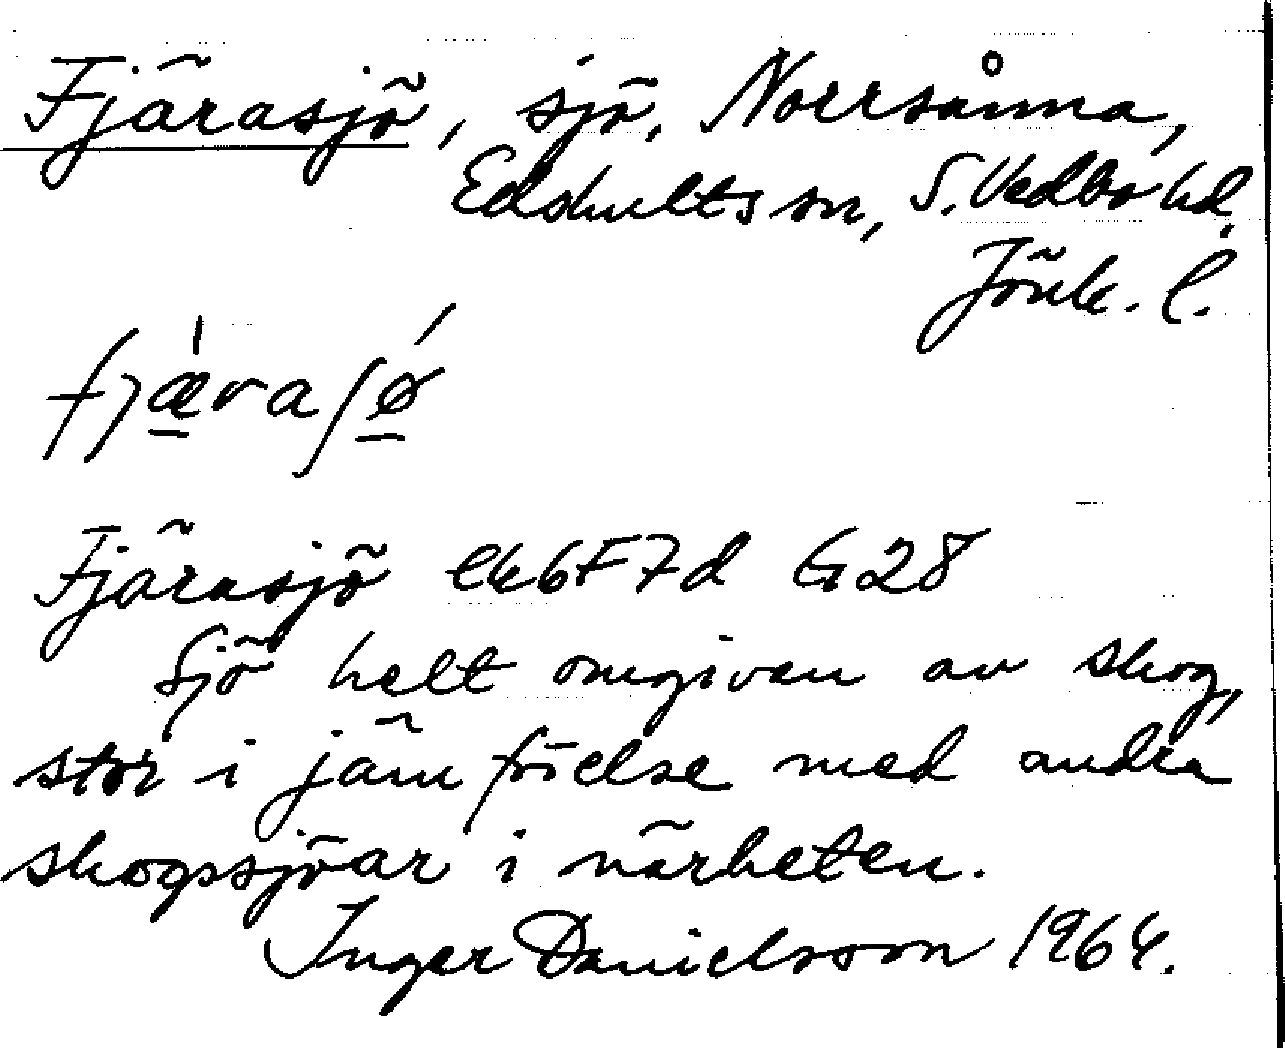 Fjärasjö, sjö, Norrsånna,
Edshults sn, S. Vedbo hd.
Jönk. l.
fjæ̠̀raʃǿ̠
Fjärasjö ek 6F7d G28
Sjö helt omgiven av skog,
stor i jämförelse med andra
skogssjöar i närheten.
Inger Danielsson 1964.